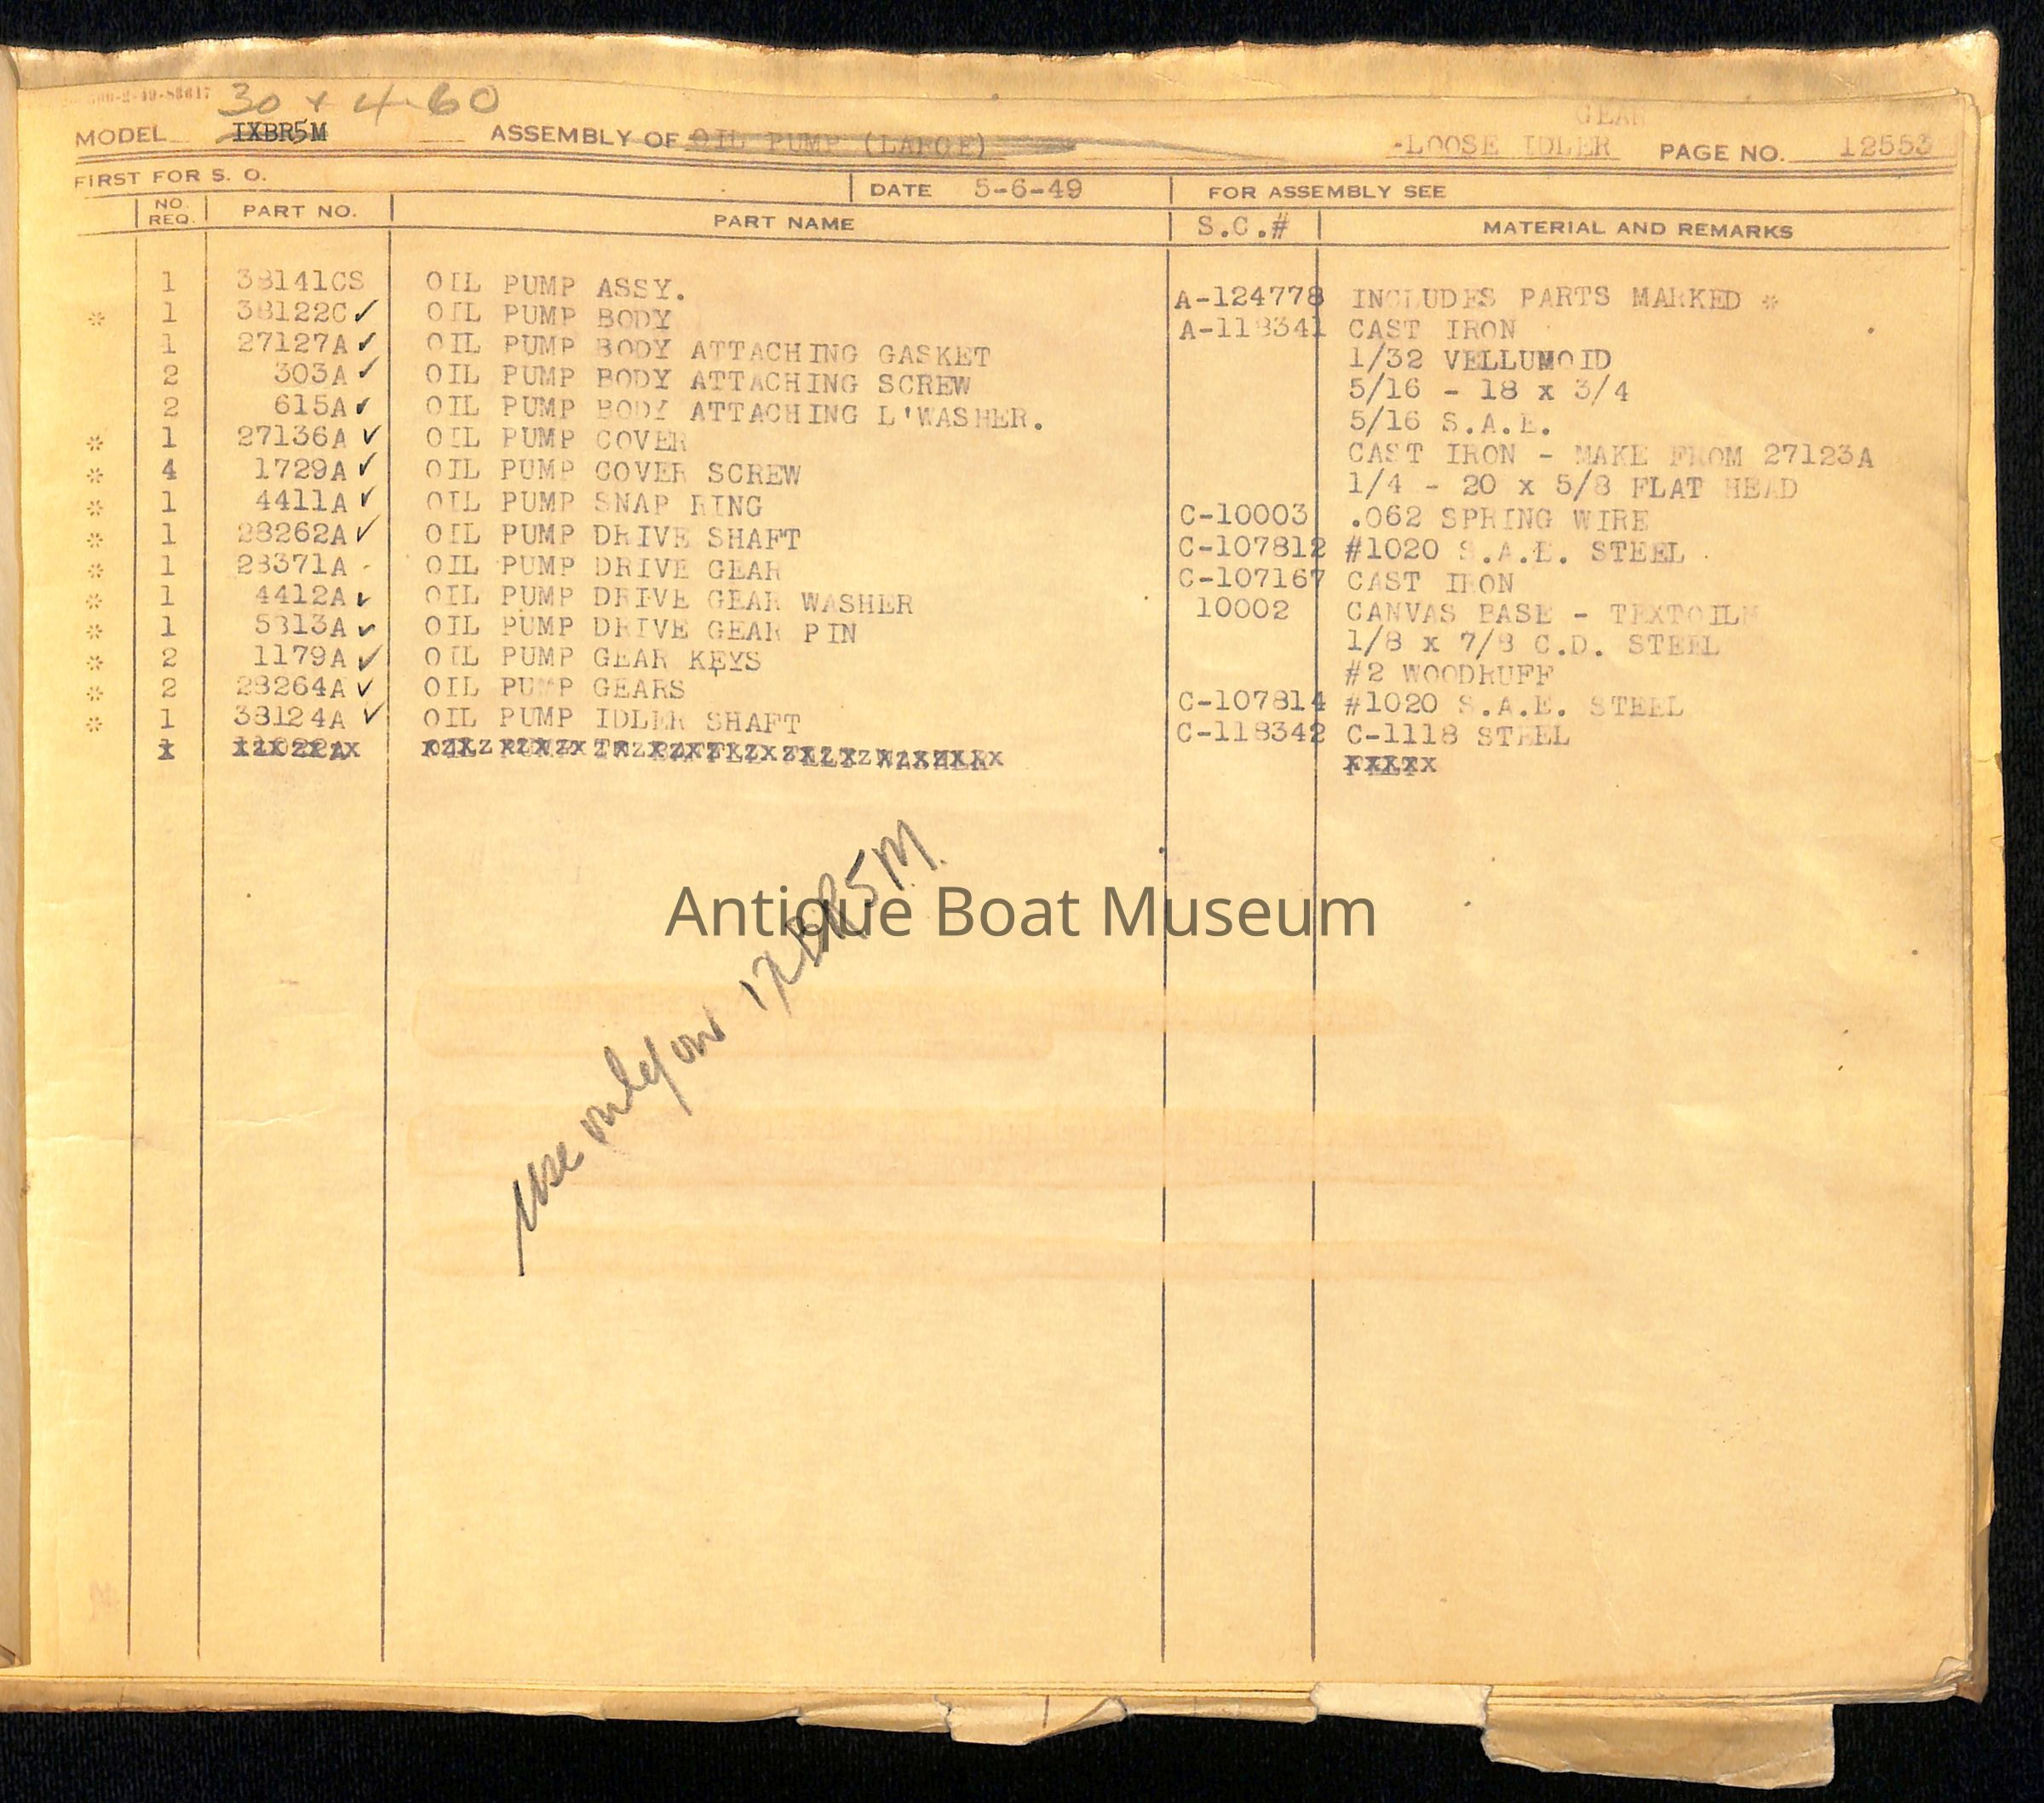 30 + 4-60
MODEL IXBR5M ASSEMBLY OF OIL PUMP (LARGE) GEAR
-LOOSE IDLER PAGE NO. 12553
FIRST FOR S. O. DATE 5-6-49 FOR ASSEMBLY SEE
NO. REQ. PART NO. PART NAME S.C.# MATERIAL AND REMARKS
1 38141CS OIL PUMP ASSY. A-124778 INCLUDES PARTS MARKED *
* 1 38122C ✓ OIL PUMP BODY A-118341 CAST IRON
1 27127A ✓ OIL PUMP BODY ATTACHING GASKET 1/32 VELLUMOID
2 303A ✓ OIL PUMP BODY ATTACHING SCREW 5/16 - 18 x 3/4
2 615A ✓ OIL PUMP BODY ATTACHING L'WASHER. 5/16 S.A.E.
* 1 27136A ✓ OIL PUMP COVER CAST IRON - MAKE FROM 27123A
* 4 1729A ✓ OIL PUMP COVER SCREW 1/4 - 20 x 5/8 FLAT HEAD
* 1 4411A ✓ OIL PUMP SNAP RING C-10003 .062 SPRING WIRE
* 1 28262A ✓ OIL PUMP DRIVE SHAFT C-107812 #1020 S.A.E. STEEL
* 1 28371A - OIL PUMP DRIVE GEAR C-107167 CAST IRON
* 1 4412A ✓ OIL PUMP DRIVE GEAR WASHER 10002 CANVAS BASE - TEXTOILM
* 1 5813A ✓ OIL PUMP DRIVE GEAR PIN 1/8 x 7/8 C.D. STEEL
* 2 1179A ✓ OIL PUMP GEAR KEYS #2 WOODRUFF
* 2 28264A ✓ OIL PUMP GEARS C-107814 #1020 S.A.E. STEEL
* 1 38124A ✓ OIL PUMP IDLER SHAFT C-118342 C-1118 STEEL
use only on IXBR5M.
Antique Boat Museum